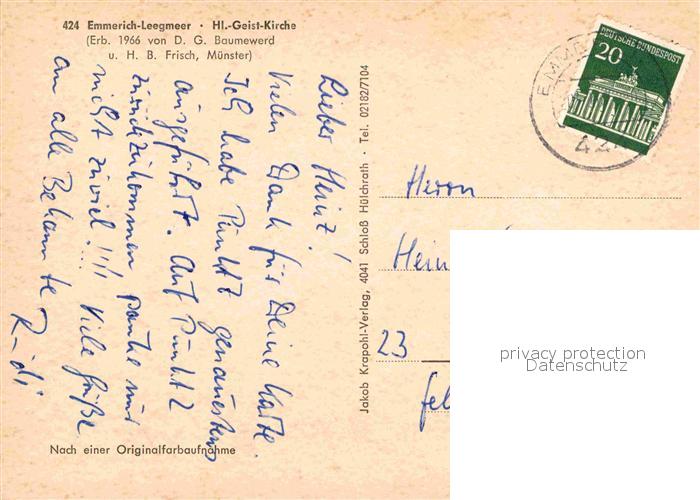 424 Emmerich-Leegmeer · Hl.-Geist-Kirche
(Erb. 1966 von D. G. Baumewerd
u. H. B. Frisch, Münster)
Lieber Heinz!
Vielen Dank für Deine Karte.
Ich habe Punkt 1 genauestens
ausgeführt. Auf Punkt 2
zurückzukommen und
nicht zuviel!!!! Viele Grüße
an alle Bekannte
Nach einer Originalfarbaufnahme
Jakob Krapohl-Verlag, 4041 Schloß Hülchrath · Tel. 02182/7104
DEUTSCHE BUNDESPOST
20
EMME
42
Herrn
Hein
23
privacy protection
Datenschutz